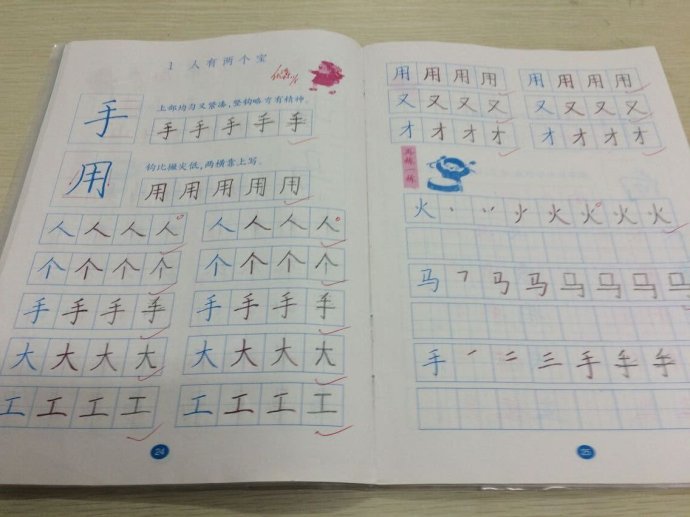 1 人有两个宝
手
上部均匀又紧凑，竖钩略弯有精神。
手 手 手 手 手
用
钩比撇尖低，两横靠上写。
用 用 用 用 用
人 人 人 人 人 人 人 人
个 个 个 个 个 个 个 个
手 手 手 手 手 手 手 手
大 大 大 大 大 大 大 大
工 工 工 工 工 工 工 工
24
用 用 用 用 用 用 用 用
又 又 又 又 又 又 又 又
才 才 才 才 才 才 才 才
再练一练
火 丶 丷 火 火 火 火 火
马 ㇕ 马 马 马 马 马 马
手 一 二 三 手 手 手 手
25